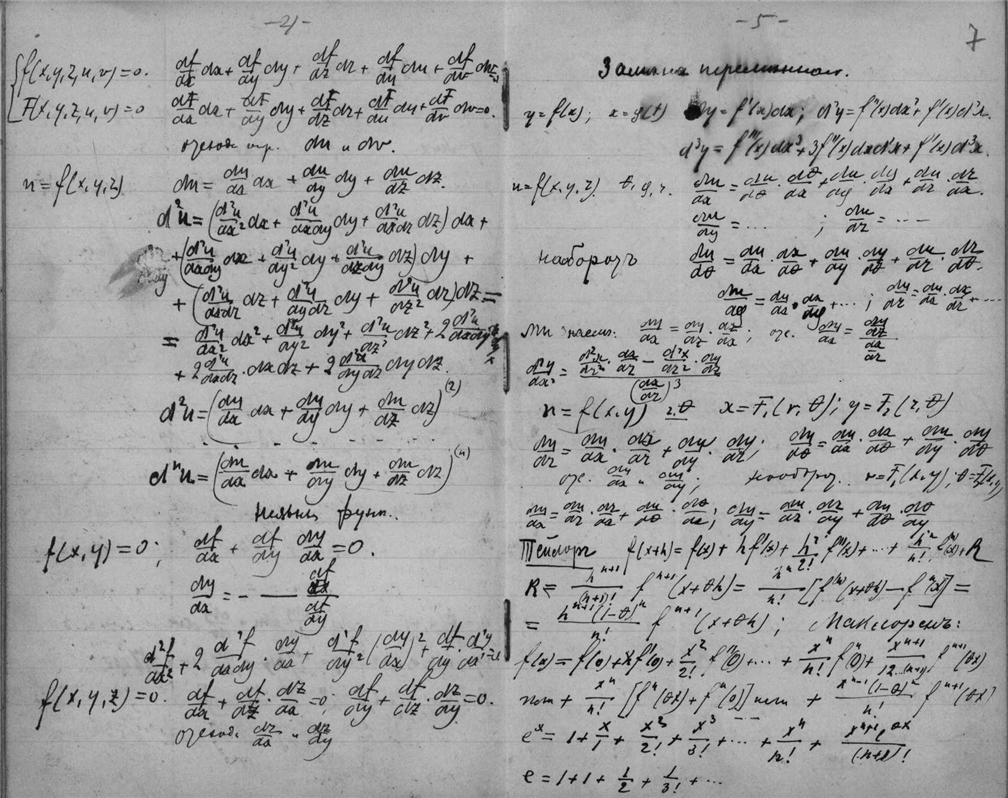 -4-
f(x,y,z,u,v)=0. df/dx dx + df/dy dy + df/dz dz + df/du du + df/dv dv=0
F(x,y,z,u,v)=0 dF/dx dx + dF/dy dy + dF/dz dz + dF/du du + dF/dv dv=0.
du и dv.
u=f(x,y,z). du = du/dx dx + du/dy dy + du/dz dz.
d²u = (d²u/dx² dx + d²u/dxdy dy + d²u/dxdz dz) dx +
+ (d²u/dxdy dx + d²u/dy² dy + d²u/dzdy dz) dy +
+ (d²u/dxdz dz + d²u/dydz dy + d²u/dz² dz) dz =
= d²u/dx² dx² + d²u/dy² dy² + d²u/dz² dz² + 2 d²u/dxdy
+ 2 d²u/dxdz · dxdz + 2 d²u/dydz dydz.
d²u = (du/dx dx + du/dy dy + du/dz dz)⁽²⁾
dⁿu = (du/dx dx + du/dy dy + du/dz dz)⁽ⁿ⁾
Неявн функ..
f(x,y)=0; df/dx + df/dy dy/dx = 0.
dy/dx = - df/dx / df/dy
d²f/dx² + 2 d²f/dxdy · dy/dx + d²f/dy² (dy/dx)² + df/dy · d²y/dx² =0
f(x,y,z)=0. df/dx + df/dz · dz/dx =0 df/dy + df/dz · dz/dy =0.
dz/dx и dz/dy
-5-
7
Замена переменном.
y=f(x); x=φ(t) dy=f'(x)dx; d²y=f''(x)dx²+f'(x)d²x.
d³y=f'''(x)dx³+3f''(x)dxd²x+f'(x)d³x.
u=f(x,y,z) θ, φ, r. du/dx = du/dθ · dθ/dx + du/dφ · dφ/dx + du/dr · dr/dx.
du/dy = ... ; du/dz = ...
наоборотъ du/dθ = du/dx · dx/dθ + du/dy · dy/dθ + du/dz · dz/dθ.
du/dφ = du/dx · dx/dφ + ... ; du/dr = du/dx · dx/dr + ...
dy/dx = dy/dr · dr/dx ; dy/dx = dy/dr / dx/dr
d²y/dx² = (d²y/dr² · dx/dr − d²x/dr² · dy/dr) / (dx/dr)³
u = f(x,y) r.θ x=F₁(r,θ); y=F₂(r,θ)
du/dr = du/dx · dx/dr + du/dy · dy/dr; du/dθ = du/dx · dx/dθ + du/dy · dy/dθ
du/dx и du/dy; наоборот. r=F₁(x,y), θ=F₂(x,y)
du/dx = du/dr · dr/dx + du/dθ · dθ/dx; du/dy = du/dr · dr/dy + du/dθ · dθ/dy
Тейлоръ f(x+h)=f(x)+hf'(x)+h²/2! f''(x)+...+hⁿ/n! fⁿ(x)+R
R = hⁿ⁺¹/(n+1)! fⁿ⁺¹(x+θh) = hⁿ/n! [fⁿ(x+θh)−fⁿ(x)] =
= hⁿ⁺¹(1-θ)ⁿ/n! fⁿ⁺¹(x+θh); Маклоренъ:
f(x)=f(0)+xf'(0)+x²/2! f''(0)+...+xⁿ/n! fⁿ(0)+xⁿ⁺¹/1.2...(n+1) fⁿ⁺¹(θx)
или + xⁿ/n! [fⁿ(θx)+fⁿ(0)] или + xⁿ⁺¹(1-θ)ⁿ/n! fⁿ⁺¹(θx)
eˣ = 1+x/1+x²/2!+x³/3!+...+xⁿ/n!+xⁿ⁺¹eᶿˣ/(n+1)!
e = 1+1+1/2+1/3!+...